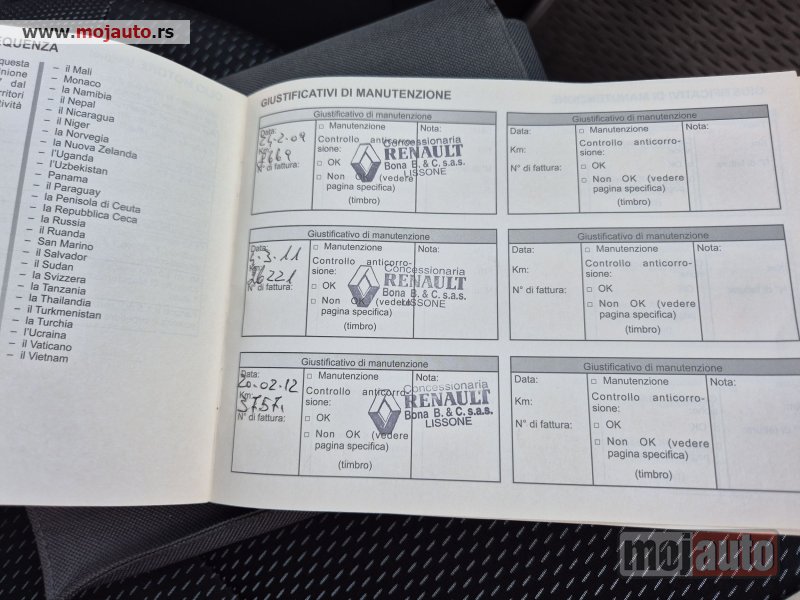 www.mojauto.rs
EQUENZA
questa
inione
dal
rritori
tività
– il Mali
– Monaco
– la Namibia
– il Nepal
– il Nicaragua
– il Niger
– la Norvegia
– la Nuova Zelanda
– l'Uganda
– l'Uzbekistan
– Panama
– il Paraguay
– la Penisola di Ceuta
– la Repubblica Ceca
– la Russia
– il Ruanda
– San Marino
– il Salvador
– il Sudan
– la Svizzera
– la Tanzania
– la Thailandia
– il Turkmenistan
– la Turchia
– l'Ucraina
– il Vaticano
– il Vietnam
GIUSTIFICATIVI DI MANUTENZIONE
Giustificativo di manutenzione
Data:
N° di fattura:
□ Manutenzione
Controllo anticorro-
sione:
□ OK
□ Non OK (vedere
pagina specifica)
(timbro)
Nota:
Concessionaria
RENAULT
Bona B. & C. s.a.s.
LISSONE
Giustificativo di manutenzione
Data:
Km:
N° di fattura:
□ Manutenzione
Controllo anticorro-
sione:
□ OK
□ Non OK (vedere
pagina specifica)
(timbro)
Nota:
Giustificativo di manutenzione
Data:
2.3.11
Km:
26221
N° di fattura:
□ Manutenzione
Controllo anticorro-
sione:
□ OK
□ Non OK (vedere
pagina specifica)
(timbro)
Nota:
Concessionaria
RENAULT
Bona B. & C. s.a.s.
LISSONE
Giustificativo di manutenzione
Data:
Km:
N° di fattura:
□ Manutenzione
Controllo anticorro-
sione:
□ OK
□ Non OK (vedere
pagina specifica)
(timbro)
Nota:
Giustificativo di manutenzione
Data:
20.02.12
Km:
N° di fattura:
□ Manutenzione
Controllo anticorro-
sione:
□ OK
□ Non OK (vedere
pagina specifica)
(timbro)
Nota:
Concessionaria
RENAULT
Bona B. & C. s.a.s.
LISSONE
Giustificativo di manutenzione
Data:
Km:
N° di fattura:
□ Manutenzione
Controllo anticorro-
sione:
□ OK
□ Non OK (vedere
pagina specifica)
(timbro)
Nota:
mojauto